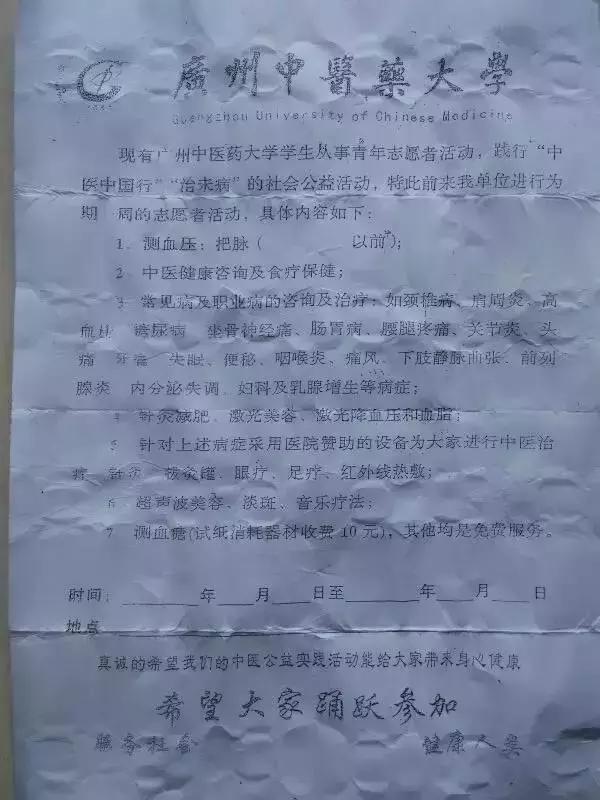 廣州中醫藥大學
Guangzhou University of Chinese Medicine
现有广州中医药大学学生从事青年志愿者活动，践行“中
医中国行”“治未病”的社会公益活动，特此前来我单位进行为
期 周的志愿者活动，具体内容如下：
1、测血压；把脉（ 以前）；
2 中医健康咨询及食疗保健；
3 常见病及职业病的咨询及治疗：如颈椎病、肩周炎、高
血压 糖尿病 坐骨神经痛、肠胃病、腰腿疼痛、关节炎、头
痛 牙痛 失眠、便秘、咽喉炎、痛风、下肢静脉曲张、前列
腺炎 内分泌失调、妇科及乳腺增生等病症；
4 针灸减肥、激光美容、激光降血压和血脂；
5 针对上述病症采用医院赞助的设备为大家进行中医治
疗 针灸 拔灸罐、眼疗、足疗、红外线热敷；
6 超声波美容、淡斑、音乐疗法；
7 测血糖(试纸消耗器材收费10元)，其他均是免费服务。
时间：______年___月___日至______年___月___日
地点
真诚的希望我们的中医公益实践活动能给大家带来身心健康
希望大家踊跃参加
服务社会 健康人类